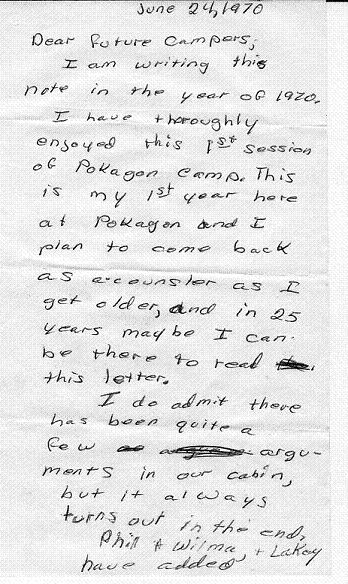 June 24, 1970
Dear Future Campers,
I am writing this
note in the year of 1970.
I have thoroughly
enjoyed this 1st session
of Pokagon Camp. This
is my 1st year here
at Pokagon and I
plan to come back
as a counsler as I
get older, and in 25
years maybe I can
be there to read
this letter.
I do admit there
has been quite a
few argu-
ments in our cabin,
but it always
turns out in the end.
Phil + Wilma, + Lakey
have added